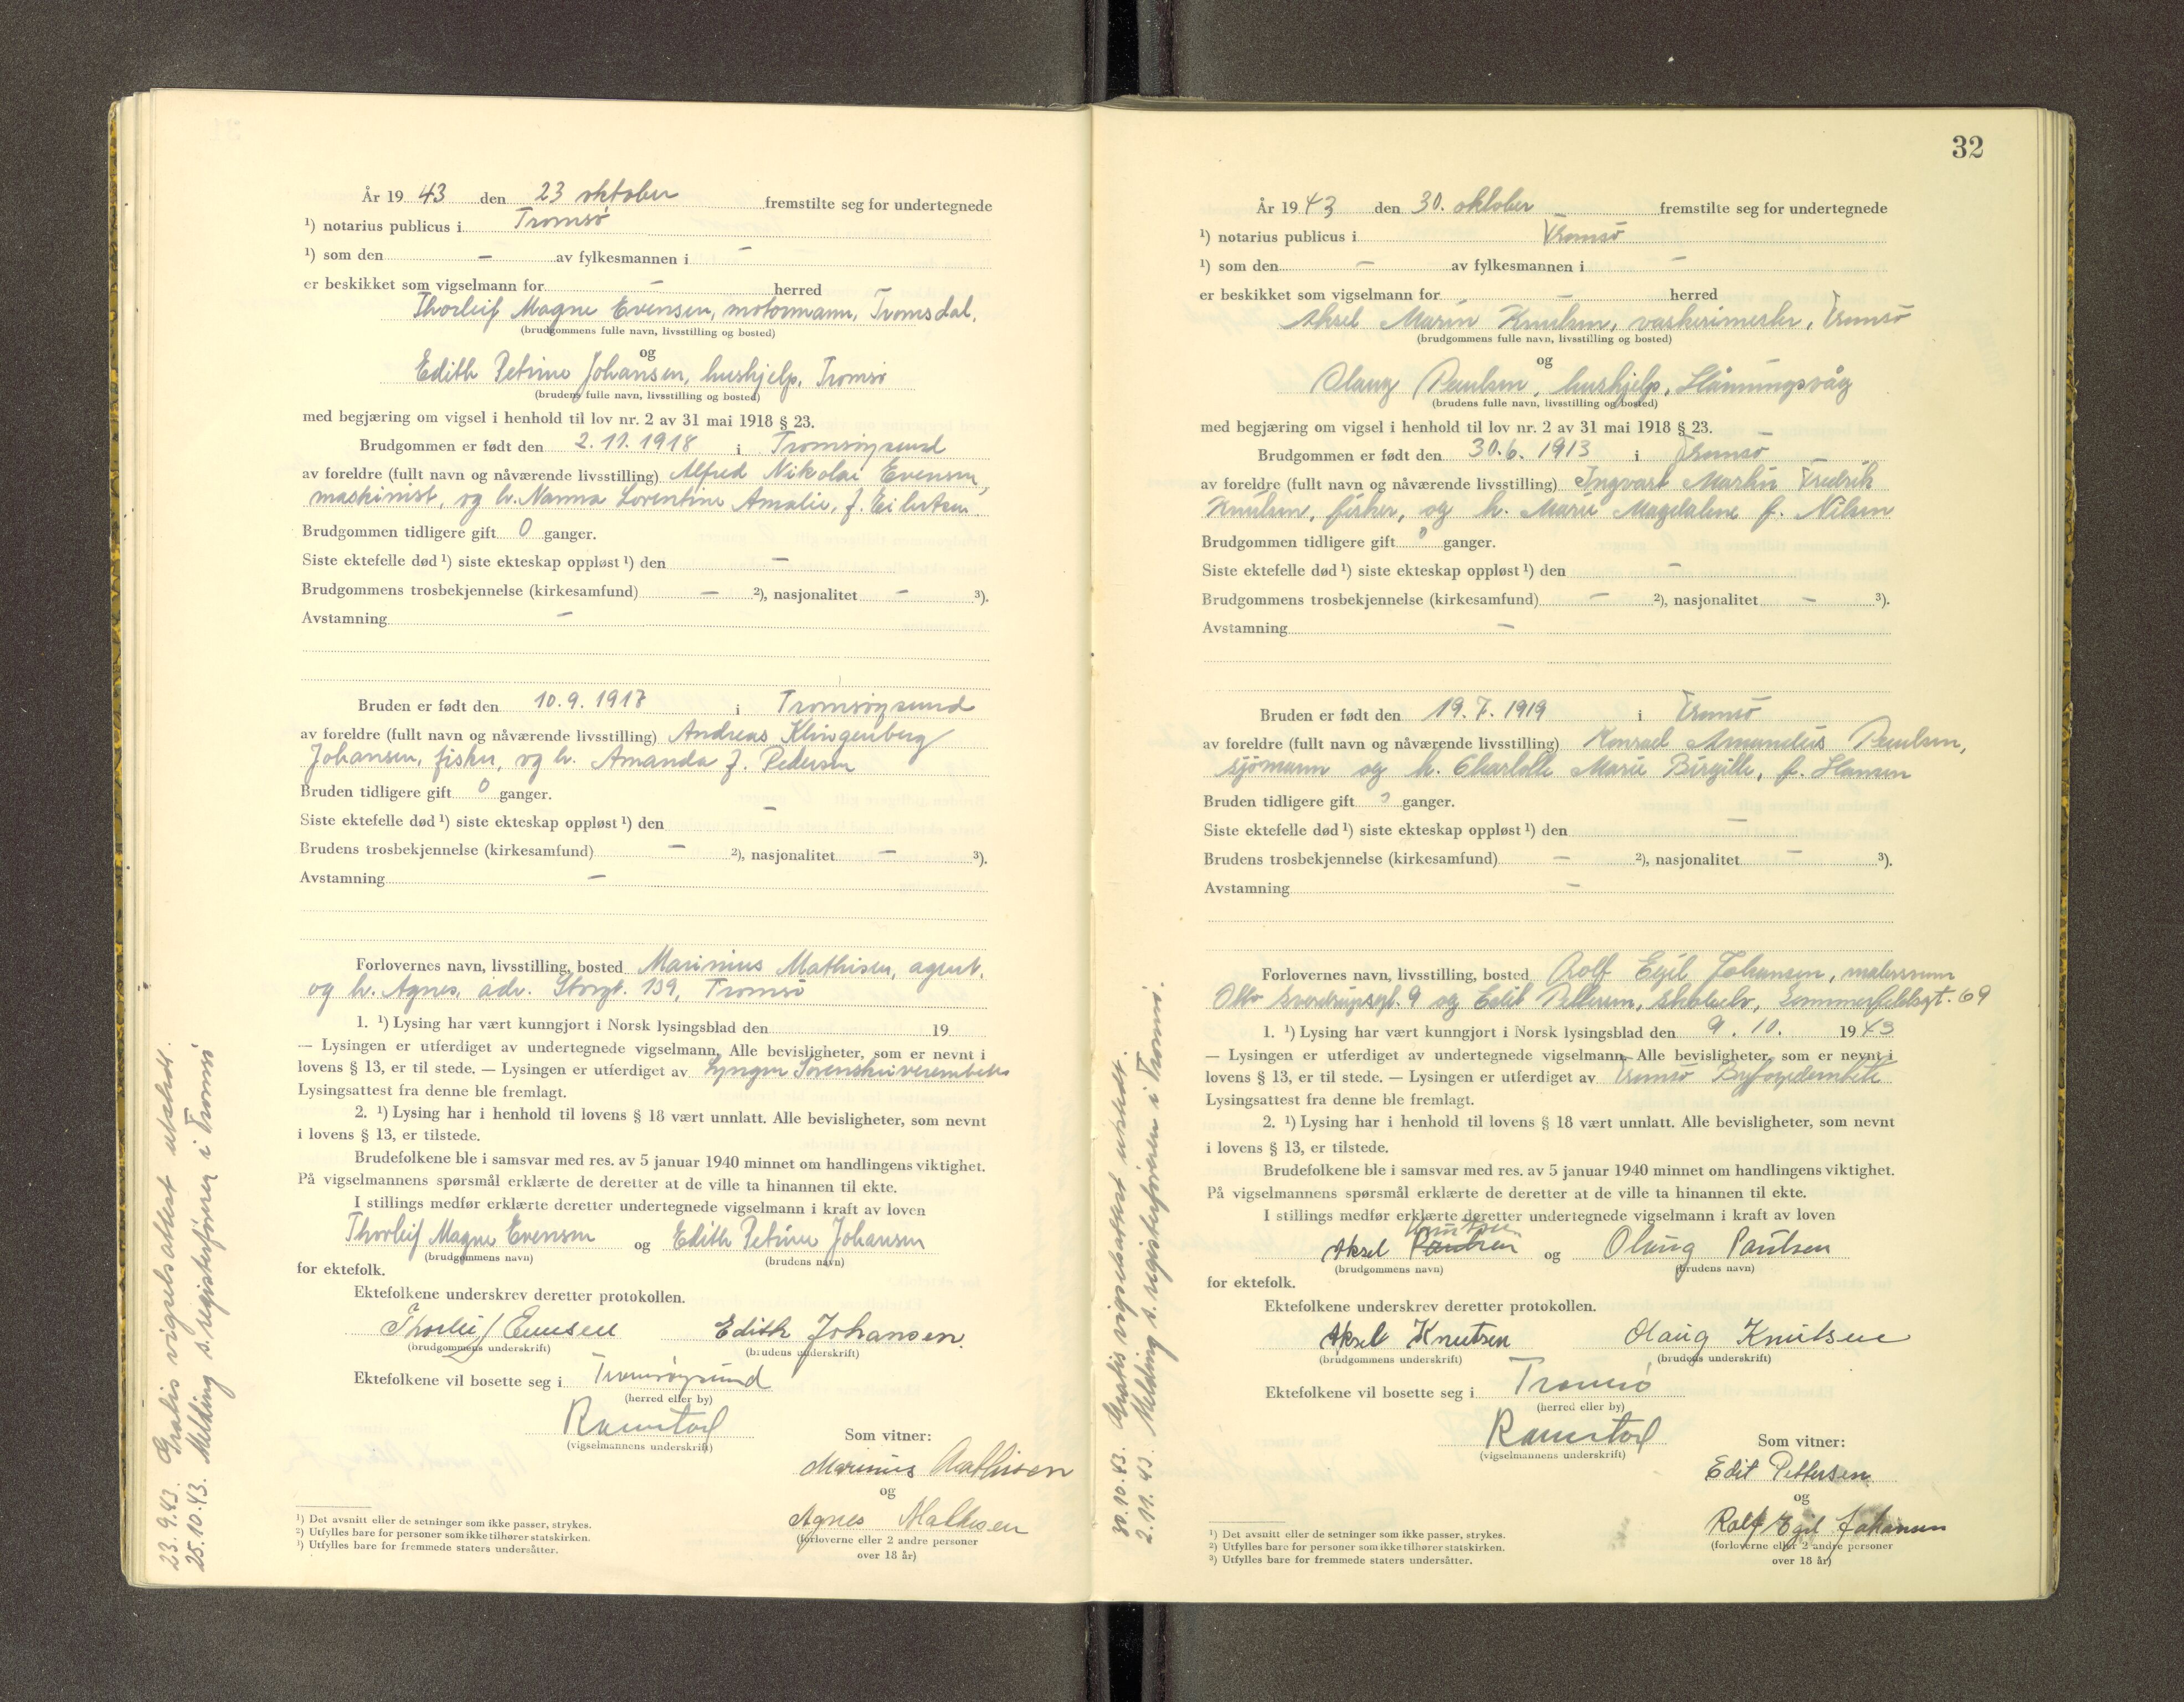 År 19 43 den 23 oktober fremstilte seg for undertegnede
¹) notarius publicus i Tromsø
¹) som den – av fylkesmannen i –
er beskikket som vigselmann for – herred
Thorleif Magne Evensen, motormann, Tromsdal.
(brudgommens fulle navn, livsstilling og bosted)
og
Edith Petrine Johansen, hushjelp, Tromsø
(brudens fulle navn, livsstilling og bosted)
med begjæring om vigsel i henhold til lov nr. 2 av 31 mai 1918 § 23.
Brudgommen er født den 2.11.1918 i Tromsøysund
av foreldre (fullt navn og nåværende livsstilling) Alfred Nikolai Evensen,
maskinist, og h. Nanna Lorentine Amalie, f. Eilertsen.
Brudgommen tidligere gift 0 ganger.
Siste ektefelle død ¹) siste ekteskap oppløst ¹) den –
Brudgommens trosbekjennelse (kirkesamfund) – ²), nasjonalitet – ³).
Avstamning –
Bruden er født den 10.9.1917 i Tromsøysund
av foreldre (fullt navn og nåværende livsstilling) Andreas Klingenberg
Johansen, fisker, og h. Amanda f. Pedersen
Bruden tidligere gift 0 ganger.
Siste ektefelle død ¹) siste ekteskap oppløst ¹) den –
Brudens trosbekjennelse (kirkesamfund) – ²), nasjonalitet – ³).
Avstamning –
Forlovernes navn, livsstilling, bosted Marinius Mathisen, agent,
og h. Agnes, adr. Storgt. 139, Tromsø
1. ¹) Lysing har vært kunngjort i Norsk lysingsblad den 19
— Lysingen er utferdiget av undertegnede vigselmann. Alle bevisligheter, som er nevnt i
lovens § 13, er til stede. — Lysingen er utferdiget av Lyngen Sorenskriverembete
Lysingsattest fra denne ble fremlagt.
2. ¹) Lysing har i henhold til lovens § 18 vært unnlatt. Alle bevisligheter, som nevnt
i lovens § 13, er tilstede.
Brudefolkene ble i samsvar med res. av 5 januar 1940 minnet om handlingens viktighet.
På vigselmannens spørsmål erklærte de deretter at de ville ta hinannen til ekte.
I stillings medfør erklærte deretter undertegnede vigselmann i kraft av loven
Thorleif Magne Evensen og Edith Petrine Johansen
(brudgommens navn) (brudens navn)
for ektefolk.
Ektefolkene underskrev deretter protokollen.
Thorleif Evensen Edith Johansen.
(brudgommens underskrift) (brudens underskrift)
Ektefolkene vil bosette seg i Tromsøysund
(herred eller by)
Ramstad
(vigselmannens underskrift)
Som vitner:
Marinius Mathisen
og
Agnes Mathisen
(forloverne eller 2 andre personer
over 18 år)
¹) Det avsnitt eller de setninger som ikke passer, strykes.
²) Utfylles bare for personer som ikke tilhører statskirken.
³) Utfylles bare for fremmede staters undersåtter.
23.9.43. Gratis vigselsattest utstedt.
25.10.43. Melding s. registerfører i Tromsø
32
År 19 43 den 30. oktober fremstilte seg for undertegnede
¹) notarius publicus i Tromsø
¹) som den – av fylkesmannen i –
er beskikket som vigselmann for – herred
Aksel Marin Knutsen, vaskerimester, Tromsø
(brudgommens fulle navn, livsstilling og bosted)
og
Olaug Paulsen, hushjelp, Honningsvåg
(brudens fulle navn, livsstilling og bosted)
med begjæring om vigsel i henhold til lov nr. 2 av 31 mai 1918 § 23.
Brudgommen er født den 30.6.1913 i Tromsø
av foreldre (fullt navn og nåværende livsstilling) Ingvart Martin Fredrik
Knutsen, fisker, og h. Marie Magdalene f. Nilsen
Brudgommen tidligere gift 0 ganger.
Siste ektefelle død ¹) siste ekteskap oppløst ¹) den –
Brudgommens trosbekjennelse (kirkesamfund) – ²), nasjonalitet – ³).
Avstamning –
Bruden er født den 19.7.1919 i Tromsø
av foreldre (fullt navn og nåværende livsstilling) Konrad Amandius Paulsen,
sjømann og h. Charlotte Marie Birgitte, f. Hansen
Bruden tidligere gift 0 ganger.
Siste ektefelle død ¹) siste ekteskap oppløst ¹) den –
Brudens trosbekjennelse (kirkesamfund) – ²), nasjonalitet – ³).
Avstamning –
Forlovernes navn, livsstilling, bosted Rolf Egil Johansen, malersvenn
Otto Sverdrupsgt. 9 og Edit Pettersen, Sommerfeldtsgt. 69
1. ¹) Lysing har vært kunngjort i Norsk lysingsblad den 9. 10. 19 43
— Lysingen er utferdiget av undertegnede vigselmann. Alle bevisligheter, som er nevnt i
lovens § 13, er til stede. — Lysingen er utferdiget av Tromsø Byfogdembete
Lysingsattest fra denne ble fremlagt.
2. ¹) Lysing har i henhold til lovens § 18 vært unnlatt. Alle bevisligheter, som nevnt
i lovens § 13, er tilstede.
Brudefolkene ble i samsvar med res. av 5 januar 1940 minnet om handlingens viktighet.
På vigselmannens spørsmål erklærte de deretter at de ville ta hinannen til ekte.
I stillings medfør erklærte deretter undertegnede vigselmann i kraft av loven
Knutsen
Aksel Paulsen og Olaug Paulsen
(brudgommens navn) (brudens navn)
for ektefolk.
Ektefolkene underskrev deretter protokollen.
Aksel Knutsen Olaug Knutsen
(brudgommens underskrift) (brudens underskrift)
Ektefolkene vil bosette seg i Tromsø
(herred eller by)
Ramstad
(vigselmannens underskrift)
Som vitner:
Edit Pettersen
og
Rolf Egil Johansen
(forloverne eller 2 andre personer
over 18 år)
¹) Det avsnitt eller de setninger som ikke passer, strykes.
²) Utfylles bare for personer som ikke tilhører statskirken.
³) Utfylles bare for fremmede staters undersåtter.
30.10.43. Gratis vigselsattest utstedt.
2.11.43. Melding s. registerføreren i Tromsø.